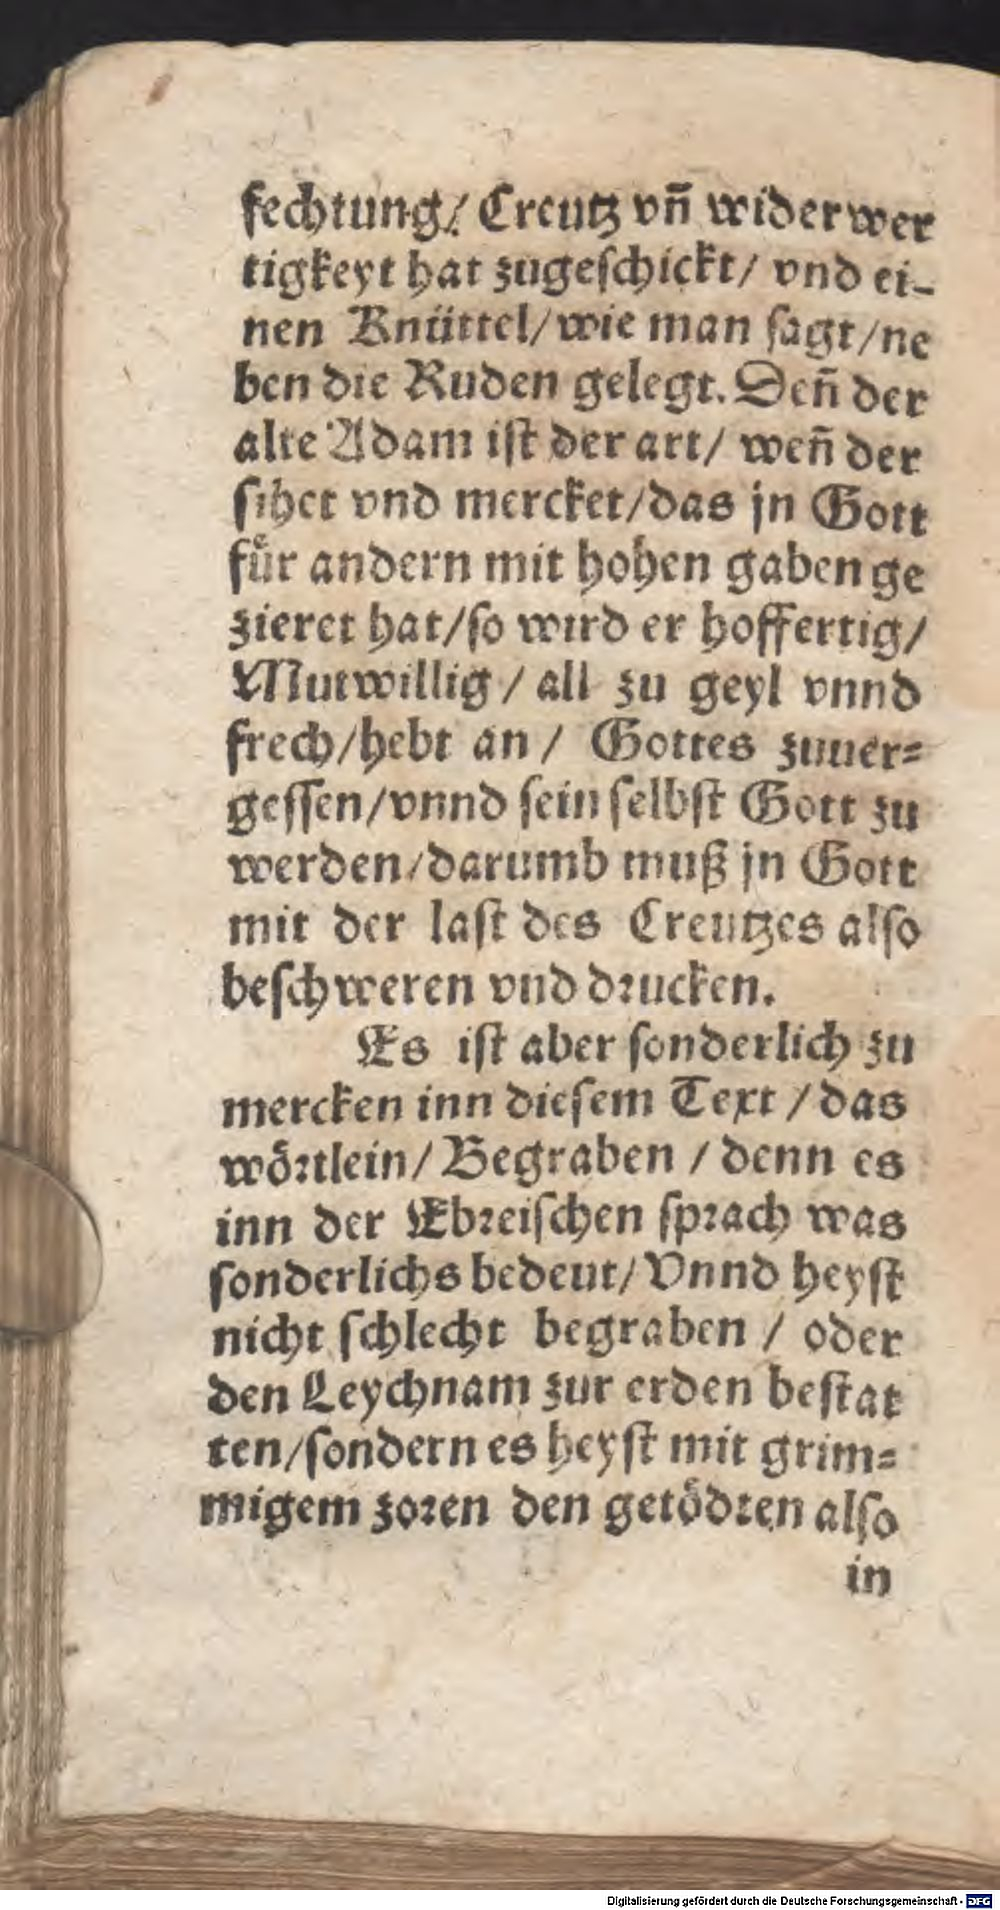 fechtung/ Creutz vn̄ widerwer
tigkeyt hat zugeschickt/ vnd ei-
nen Knüttel/ wie man sagt/ ne
ben die Ruden gelegt. Den̄ der
alte Adam ist der art/ wen̄ der
sihet vnd mercket/ das jn Gott
fuͤr andern mit hohen gaben ge
zieret hat/ so wird er hoffertig/
Mutwillig/ all zu geyl vnnd
frech/ hebt an/ Gottes zuuer=
gessen/ vnnd sein selbst Gott zu
werden/ darumb muß jn Gott
mit der last des Creutzes also
beschweren vnd drucken.
Es ist aber sonderlich zu
mercken inn diesem Text/ das
woͤrtlein/ Begraben/ denn es
inn der Ebreischen sprach was
sonderlichs bedeut/ Vnnd heyst
nicht schlecht begraben/ oder
den Leychnam zur erden bestat
ten/ sondern es heyst mit grim=
migem zoren den getoͤdten also
in
Digitalisierung gefördert durch die Deutsche Forschungsgemeinschaft - DFG